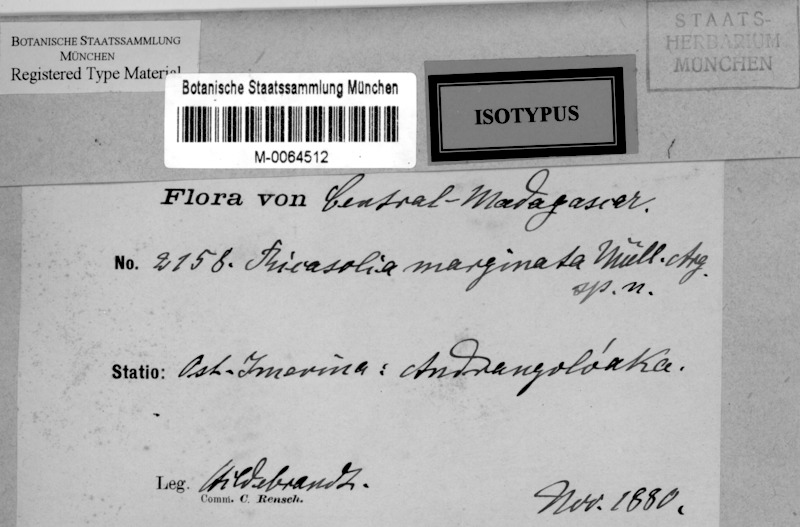 BOTANISCHE STAATSSAMMLUNG
MÜNCHEN
Registered Type Material
Botanische Staatssammlung München
M-0064512
ISOTYPUS
STAATS-
HERBARIUM
MÜNCHEN
Flora von Central-Madagascar.
No. 2158. Ricasolia marginata Müll. Arg.
sp. n.
Statio: Ost-Imerina: Andrangolóaka.
Leg. Hildebrandt.
Comm. C. Rensch.
Nov. 1880.